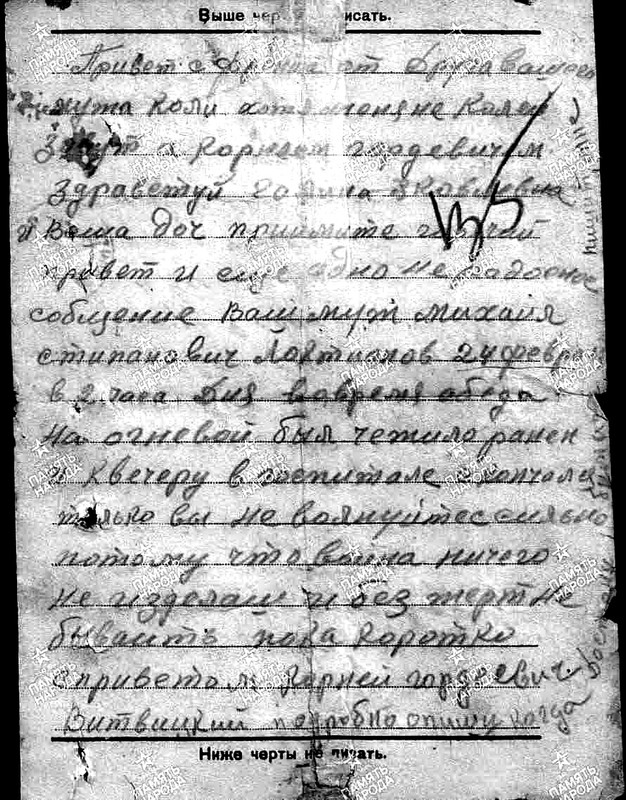 Выше черты не писать.
Привет с фронта от Друга вашего
мужа Коли хотя меня не Колей
Зовут а Корнеем гордевичем
Здравствуй Яковлевна
и Ваша Доч примите горячий
привет и еще одно не
сообщение Ваш муж михаил
стипанович 24 феврал
в 2 часа Дня вовремя обеда
На огневой был тежило ранен
и Квечеру в госпитале скончался
только вы не волнуйтес сильно
потому что война ничего
не изделаш и без жертв не
бываить пока Коротко
с приветом Корней гордеевич
Витвицкий подробно опишу когда
Ниже черты не писать.